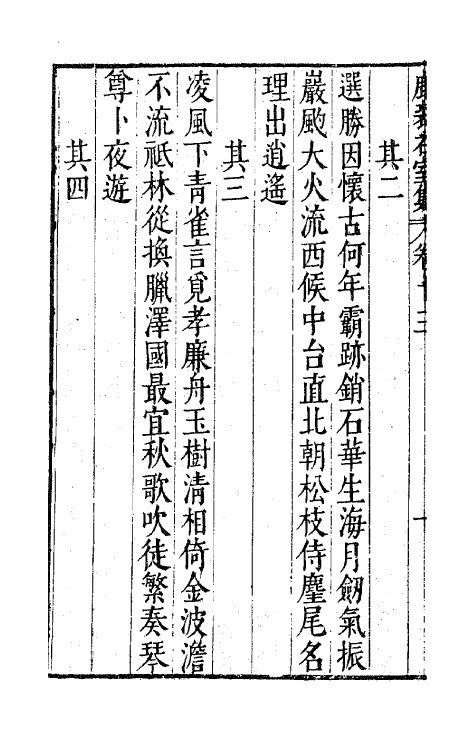 其二
選勝因懷古何年霸跡銷石華生海月劒氣振
巖颷大火流西候中台直北朝松枝侍麈尾名
理出逍遙
其三
凌風下青雀言覓孝廉舟玉樹清相倚金波澹
不流祇林從換臘澤國最宜秋歌吹徒繁奏琴
尊卜夜遊
其四